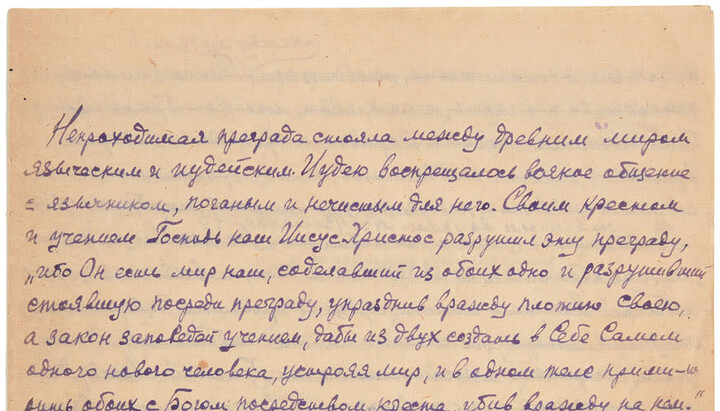 Непроходимая преграда стояла между древним миром
языческим и иудейским. Иудею воспрещалось всякое общение
с язычником, поганым и нечистым для него. Своим крестом
и учением Господь наш Иисус Христос разрушил эту преграду,
„ибо Он есть мир наш, соделавший из обоих одно и разрушивший
стоявшую посреди преграду, упразднив вражду плотию Своею,
а закон заповедей учением, дабы из двух создать в Себе Самом
одного нового человека, устрояя мир, и в одном теле прими-
рить обоих с Богом посредством креста, убив вражду на нем."